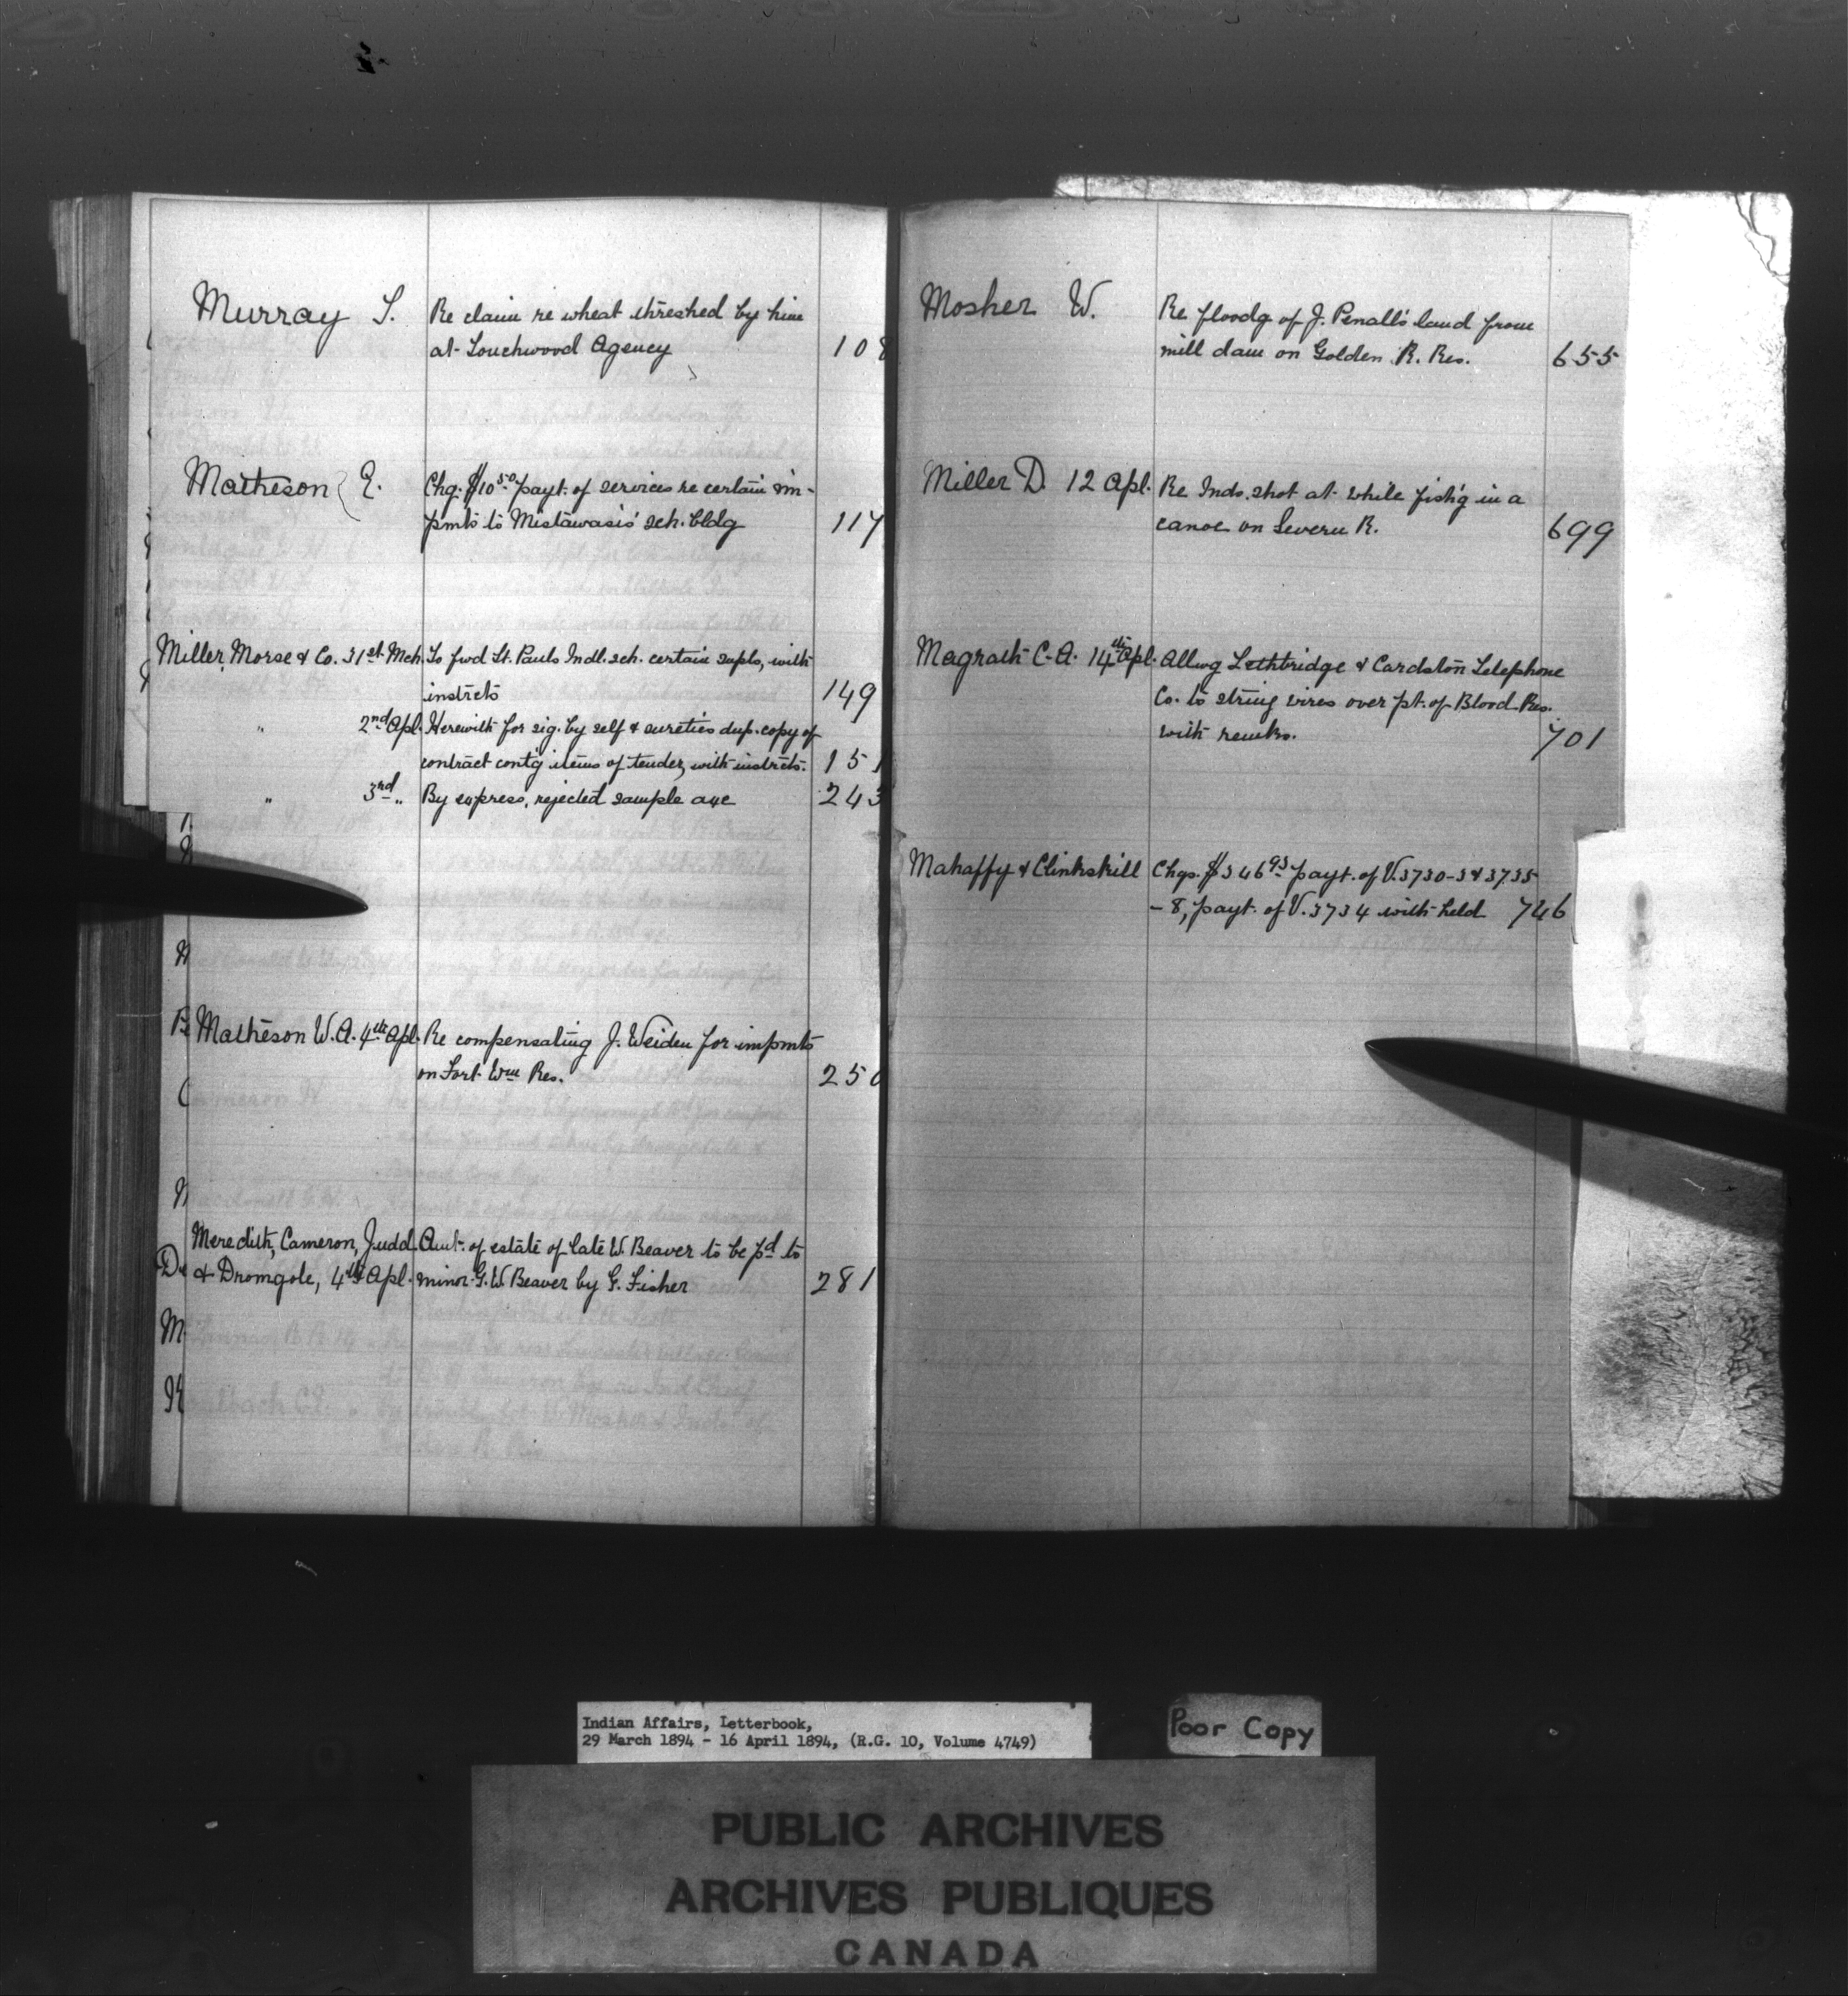 Murray S. Re claim re wheat threshed by him
at Touchwood Agency 108
Matheson E. Chg. $10.50 payt. of services re certain im-
pmts to Mistawasis' sch. bldg 117
Miller, Morse & Co. 31st Mch. To fwd St. Pauls Indl. sch. certain supls, with
instrcts 149
" 2nd Apl. Herewith for sig. by self & sureties dup. copy of
contract contg items of tender, with instrcts. 151
" 3rd " By express, rejected sample axe 243
Matheson W. A. 4th Apl. Re compensating J. Weiden for impmts
on Fort Wm Res. 250
Meredith, Cameron, Judd Amt. of estate of late W. Beaver to be pd to
& Dromgole, 4th Apl. minor G. W. Beaver by G. Fisher 281
Mosher W. Re floodg of J. Penall's land from
mill dam on Golden R. Res. 655
Miller D. 12 Apl. Re Inds. shot at while fish'g in a
canoe on Severn R. 699
Magrath C. A. 14th Apl. Allwg Lethbridge & Cardston Telephone
Co. to string wires over pt. of Blood Res.
with remks. 701
Mahaffy & Clinkskill Chgs. $346.93 payt. of V. 3730-3 & 3735
-8, payt. of V. 3734 with held 746
Indian Affairs, Letterbook,
29 March 1894 - 16 April 1894, (R.G. 10, Volume 4749)
Poor Copy
PUBLIC ARCHIVES
ARCHIVES PUBLIQUES
CANADA